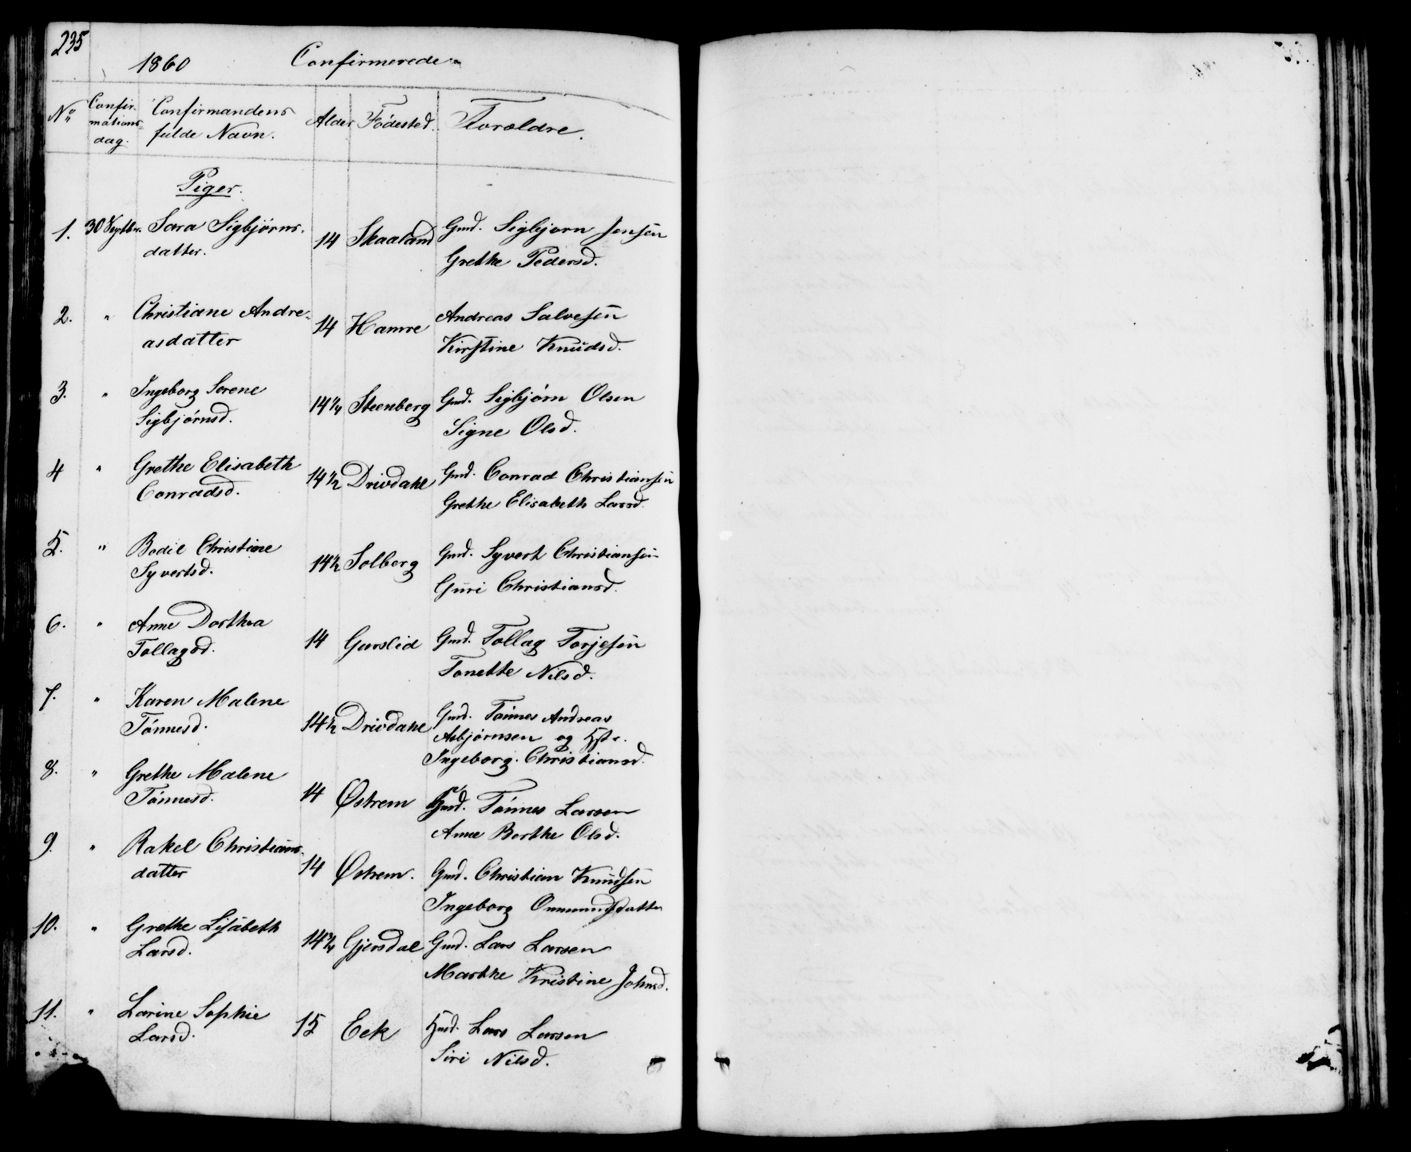 235
1860 Confirmerede
No Confirmationsdag. Confirmandens fulde Navn. Alder Födested. Forældre.
Piger.
1. 30 Septbr. Sara Sigbjørns- 14 Skaaland Gmd. Sigbjørn Jensen
datter. Grethe Pedersd.
2. " Christiane Andre- 14 Hamre Andreas Salvesen
asdatter Kirstine Knudsd.
3. " Ingeborg Serene 14¼ Steenberg Gmd. Sigbjørn Olsen
Sigbjørnsd. Signe Olsd.
4 " Grethe Elisabeth 14½ Drivdahl Gmd. Conrad Christiansen
Conradsd. Grethe Elisabeth Larsd.
5. " Bodil Christine 14½ Solberg Gmd. Syvert Christiansen
Syvertsd. Guri Christiansd.
6. " Anne Dorthea 14 Gurslid Gmd. Tollag Torjesen
Tollagsd. Tonette Nilsd.
7. " Karen Malene 14½ Drivdahl Gmd. Tönnes Andreas
Tönnesd. Asbjørnsen og Hstr.
Ingeborg Christiansd.
8. " Grethe Malene 14 Østrem Gmd. Tönnes Larsen
Tönnesd. Anne Berthe Olsd.
9. " Rakel Christians- 14 Østrem. Gmd. Christian Knudsen
datter Ingeborg Ommundsdatter
10. " Grethe Lisabeth 14¼ Gjersdal Gmd. Lars Larsen
Larsd. Marthe Kristine Johnsd.
11. " Larine Sophie 15 Eek Hmd. Lars Larsen
Larsd. Siri Nilsd.